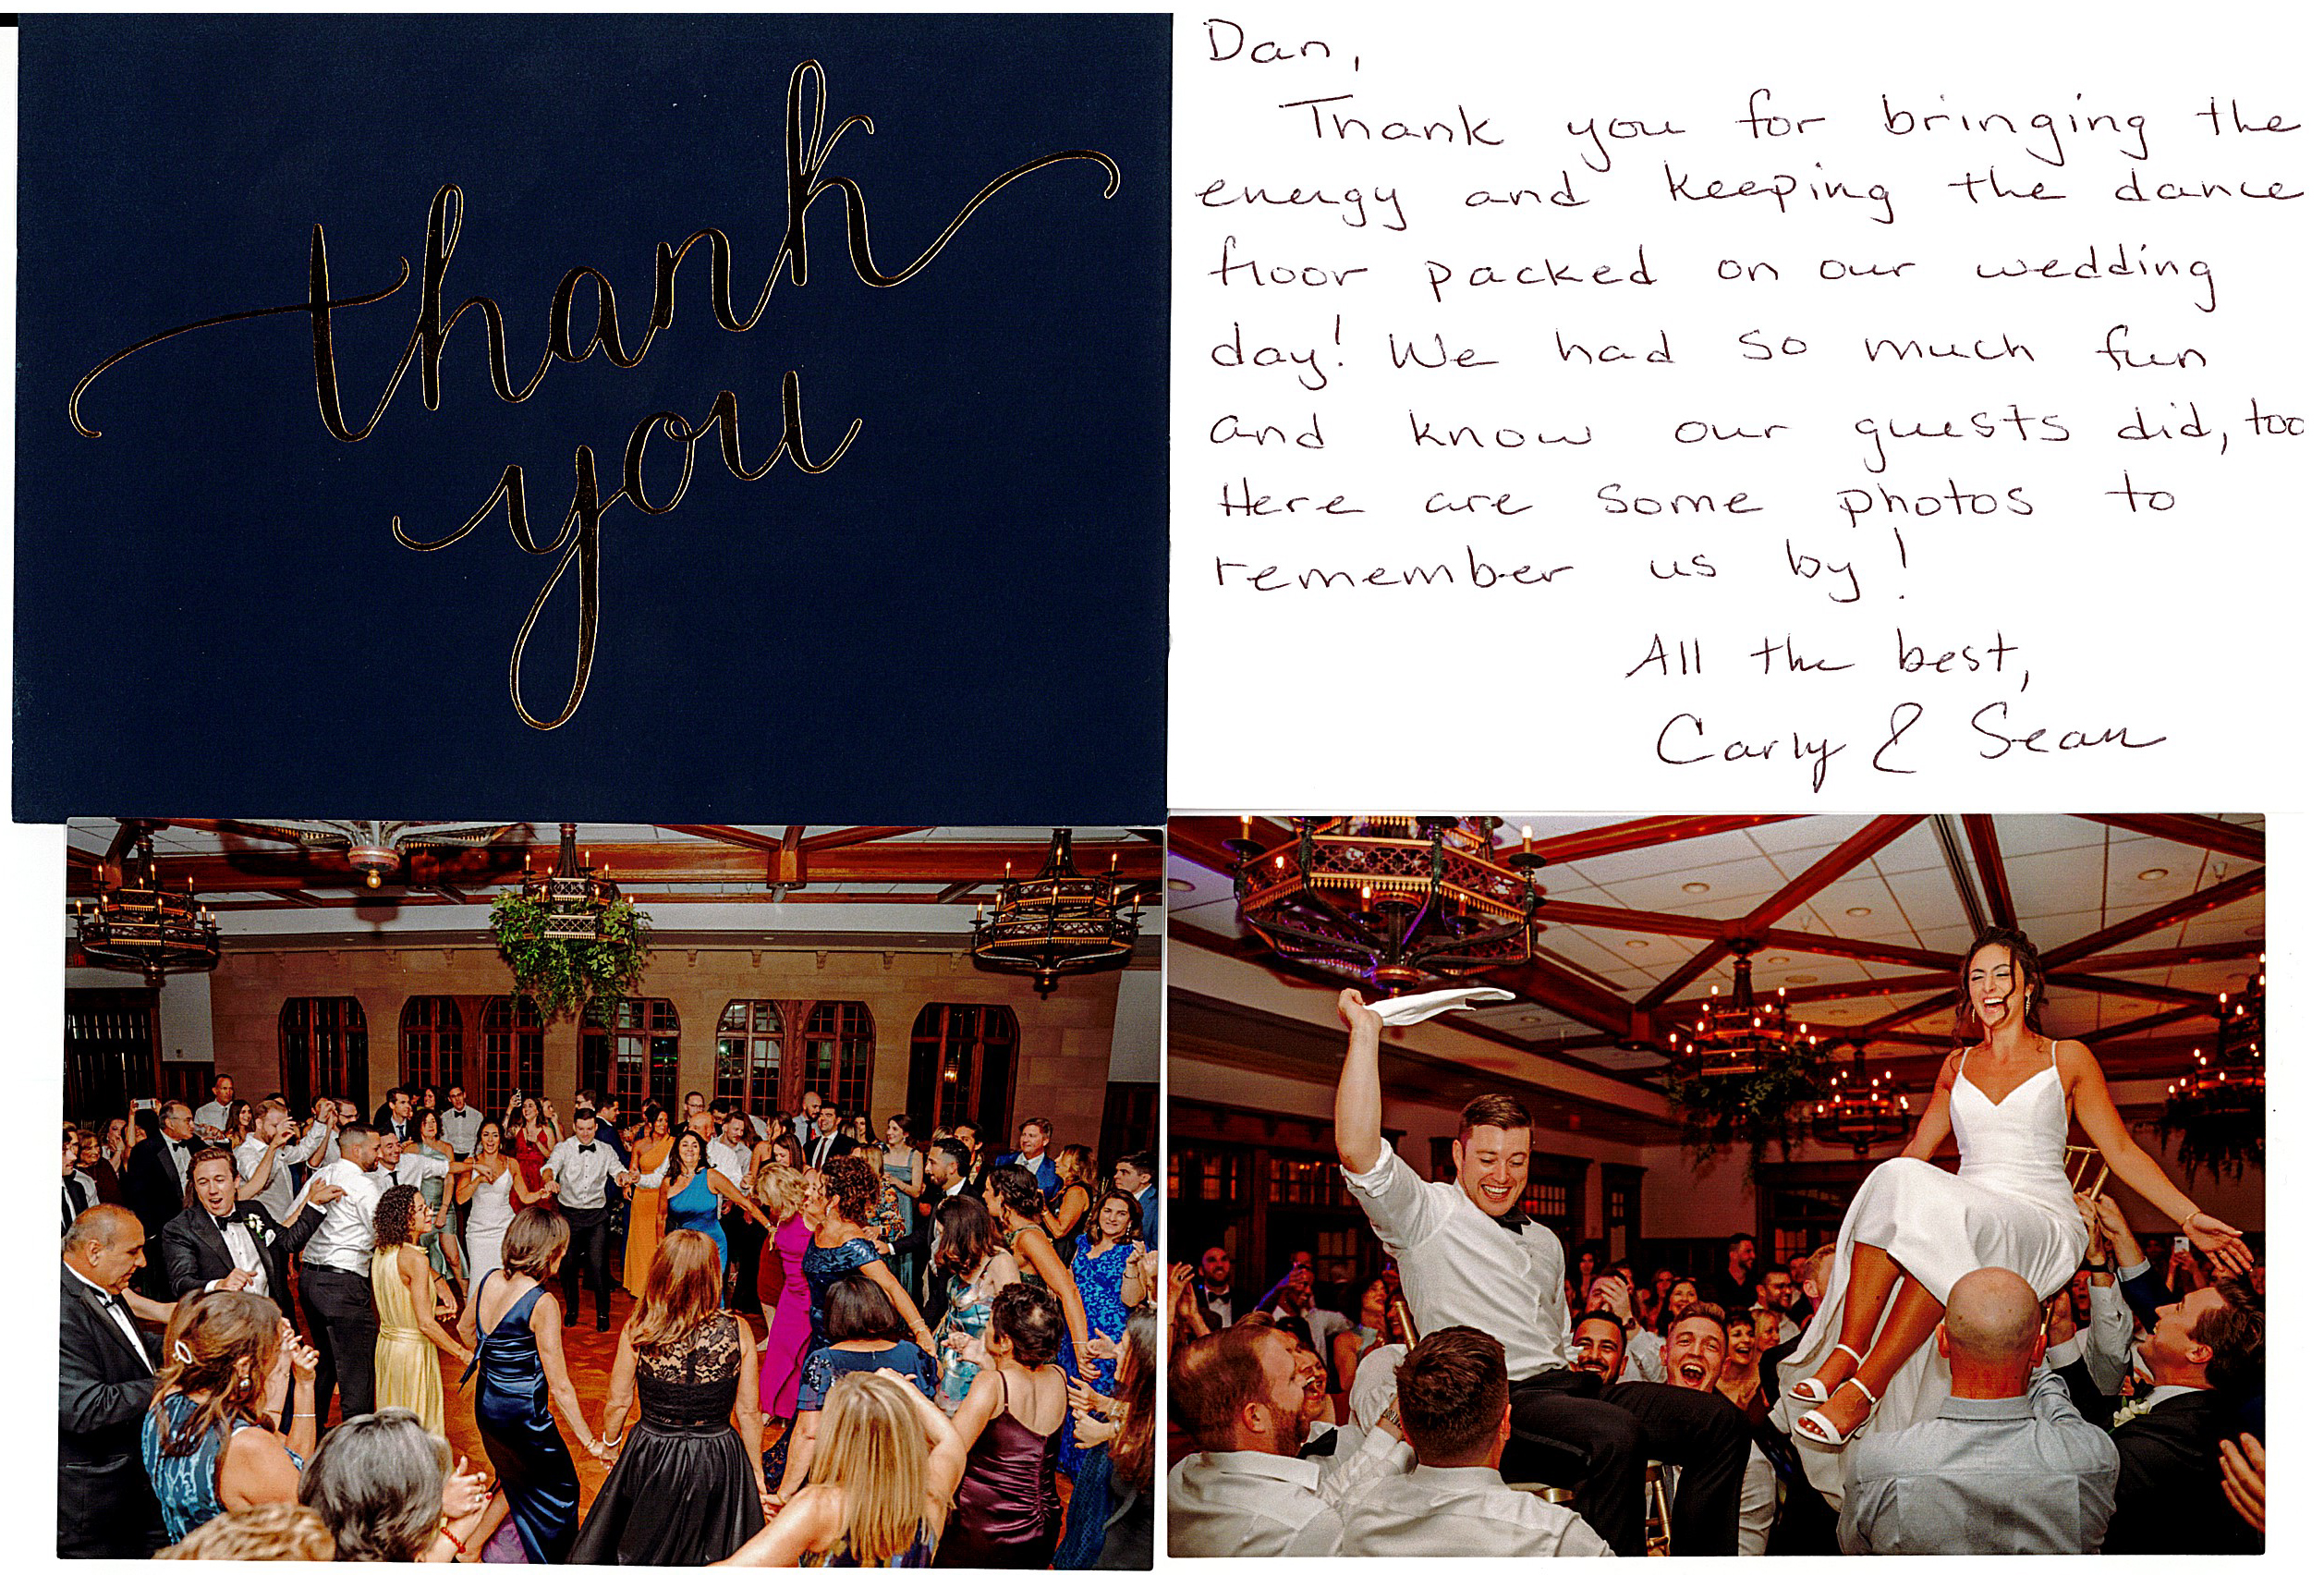 thank
you
Dan,
Thank you for bringing the
energy and keeping the dance
floor packed on our wedding
day! We had so much fun
and know our guests did, too
Here are some photos to
remember us by!
All the best,
Carly & Sean